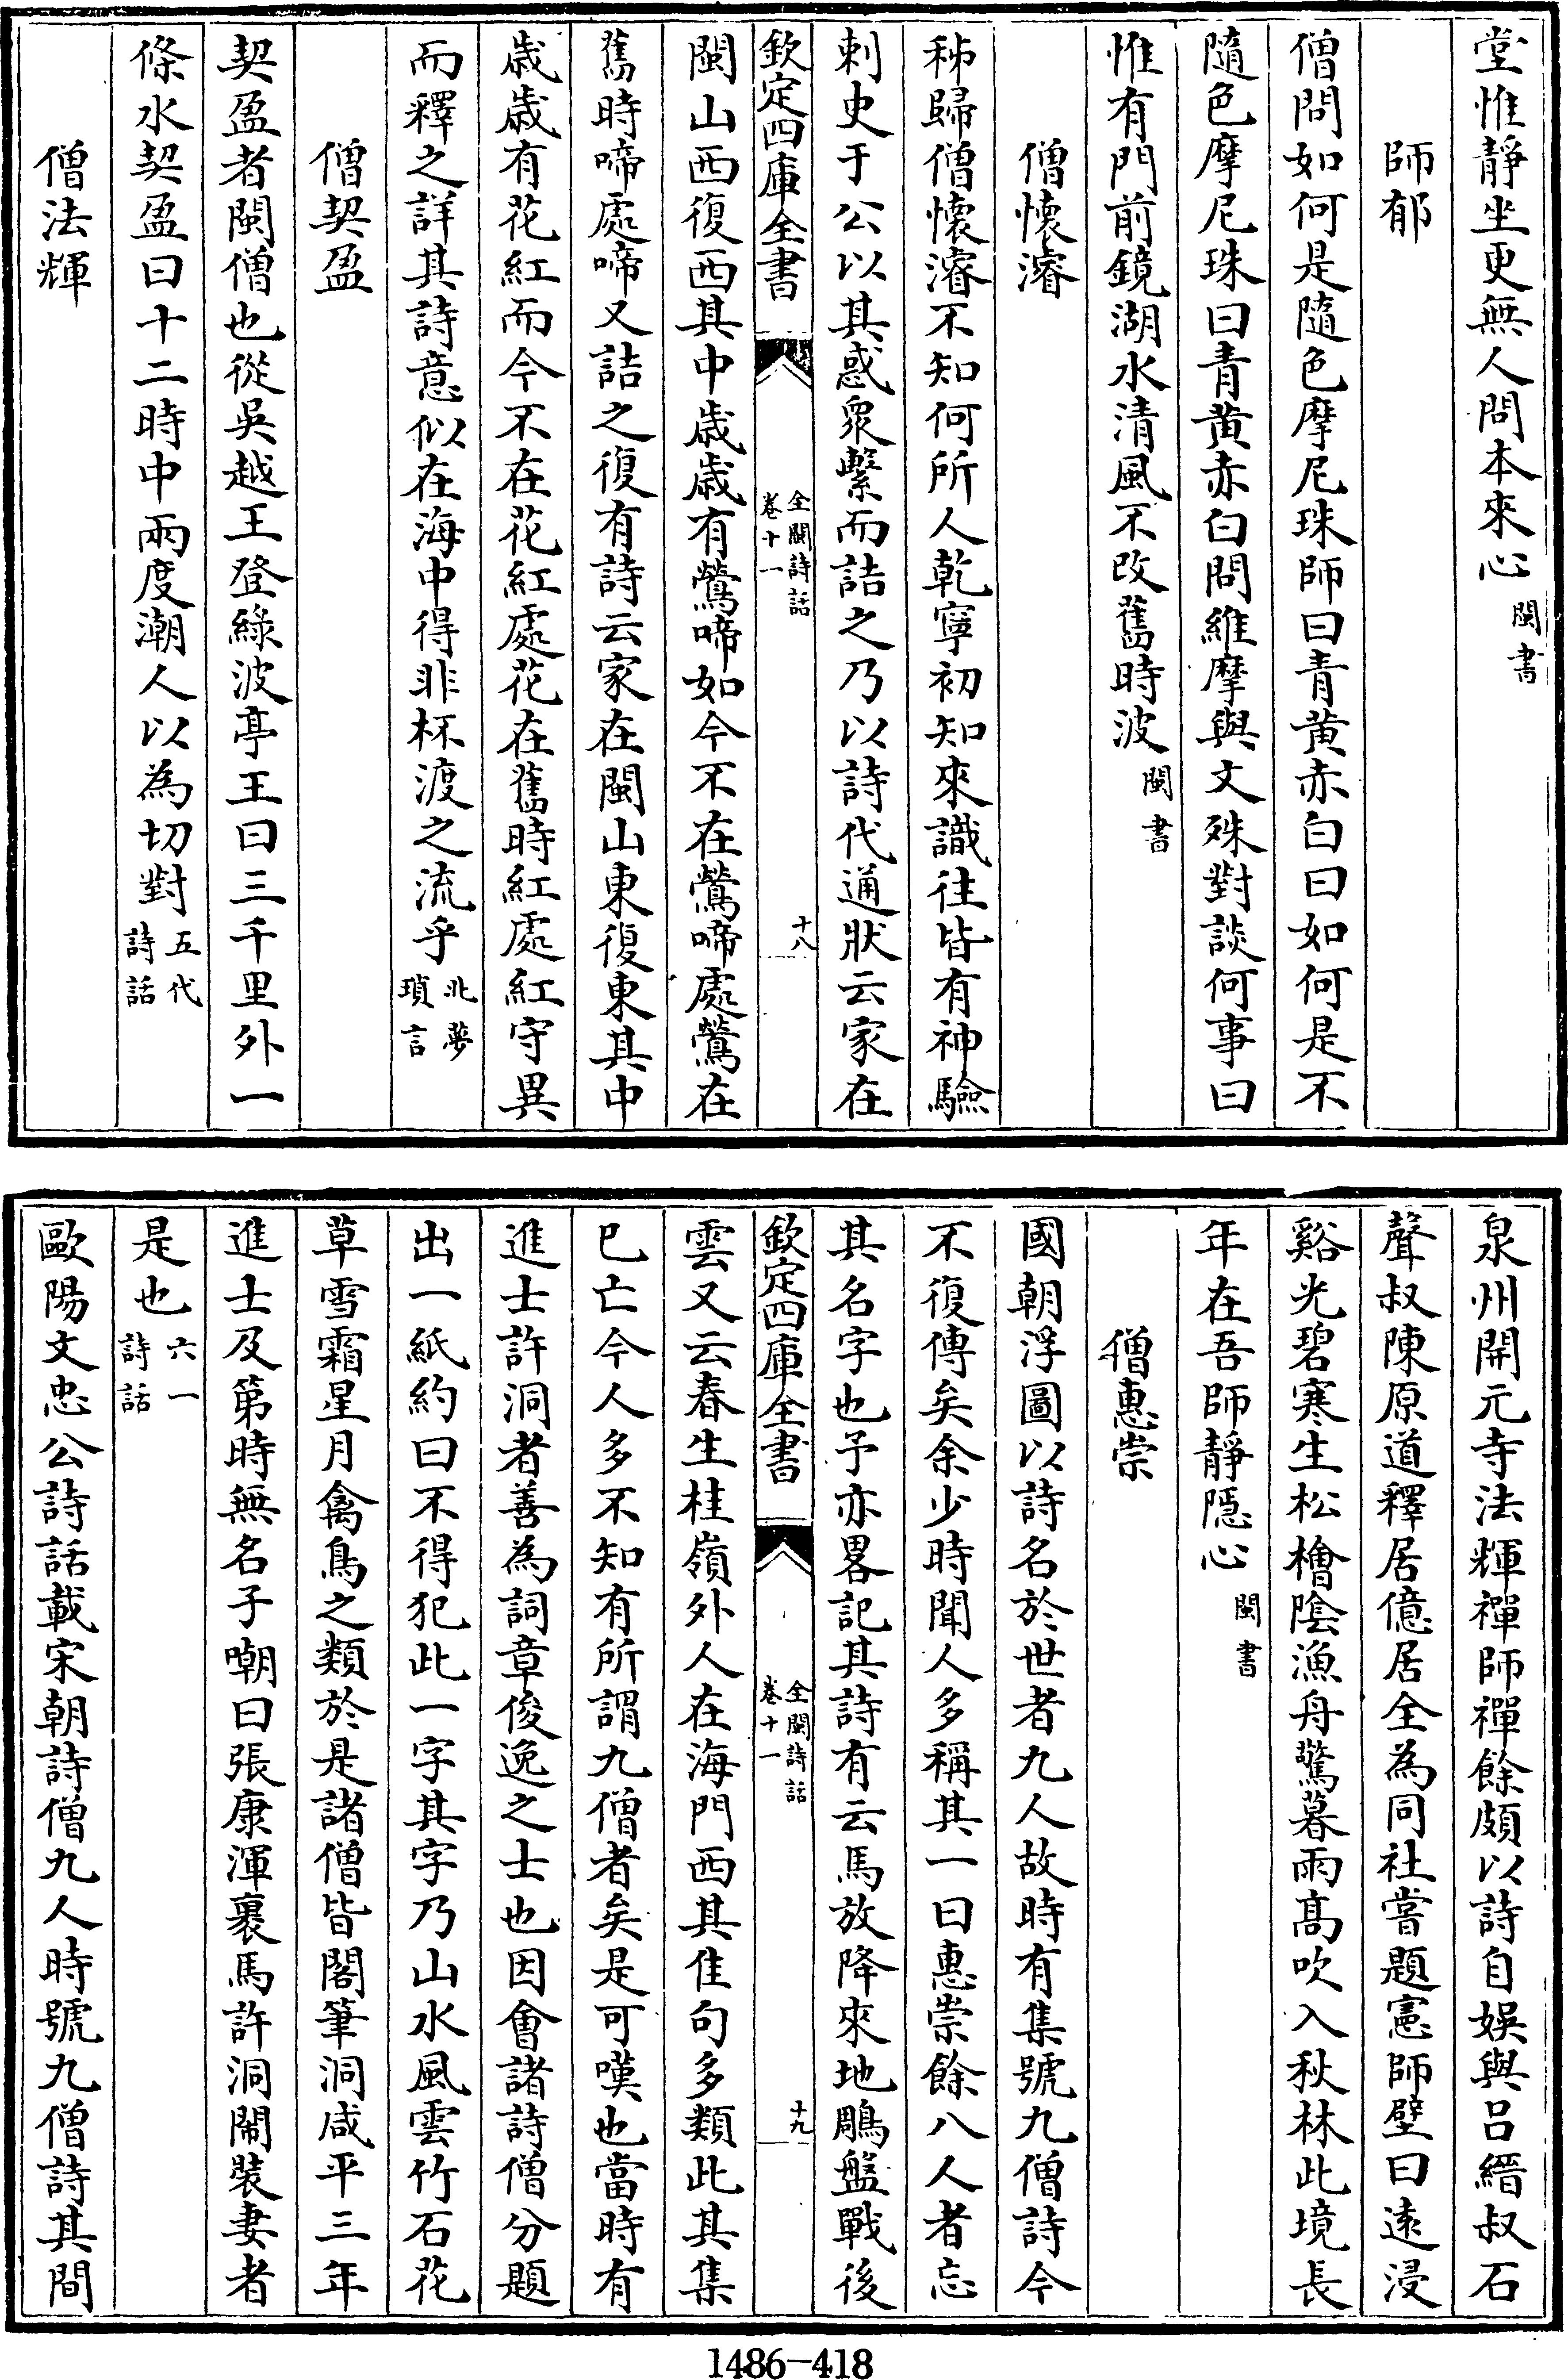 堂惟靜坐更無人問本來心閩書
師郁
僧問如何是隨色摩尼珠師曰青黄赤白曰如何是不
隨色摩尼珠曰青黄赤白問維摩與文殊對談何事曰
惟有門前鏡湖水清風不改舊時波閩書
僧懷濬
秭歸僧懷濬不知何所人乾寧初知來識往皆有神驗
刺史于公以其惑衆繫而詰之乃以詩代通狀云家在
欽定四庫全書
全閩詩話
卷十一
十八
閩山西復西其中歳歳有鶯啼如今不在鶯啼處鶯在
舊時啼處啼又詰之復有詩云家在閩山東復東其中
歳歳有花紅而今不在花紅處花在舊時紅處紅守異
而釋之詳其詩意似在海中得非杯渡之流乎北夢
瑣言
僧契盈
契盈者閩僧也從吳越王登綠波亭王曰三千里外一
條水契盈曰十二時中兩度潮人以為切對五代
詩話
僧法輝
泉州開元寺法輝禪師禪餘頗以詩自娛與呂縉叔石
聲叔陳原道釋居億居全為同社嘗題憲師壁曰遠浸
谿光碧寒生松檜陰漁舟驚暮雨髙吹入秋林此境長
年在吾師靜隱心閩書
僧惠崇
國朝浮圖以詩名於世者九人故時有集號九僧詩今
不復傳矣余少時聞人多稱其一曰惠崇餘八人者忘
其名字也予亦畧記其詩有云馬放降來地鵰盤戰後
欽定四庫全書
全閩詩話
卷十一
十九
雲又云春生桂嶺外人在海門西其佳句多類此其集
已亡今人多不知有所謂九僧者矣是可嘆也當時有
進士許洞者善為詞章俊逸之士也因會諸詩僧分題
出一紙約曰不得犯此一字其字乃山水風雲竹石花
草雪霜星月禽鳥之類於是諸僧皆閣筆洞咸平三年
進士及第時無名子嘲曰張康渾裹馬許洞鬧裝妻者
是也六一
詩話
歐陽文忠公詩話載宋朝詩僧九人時號九僧詩其間
1486-418